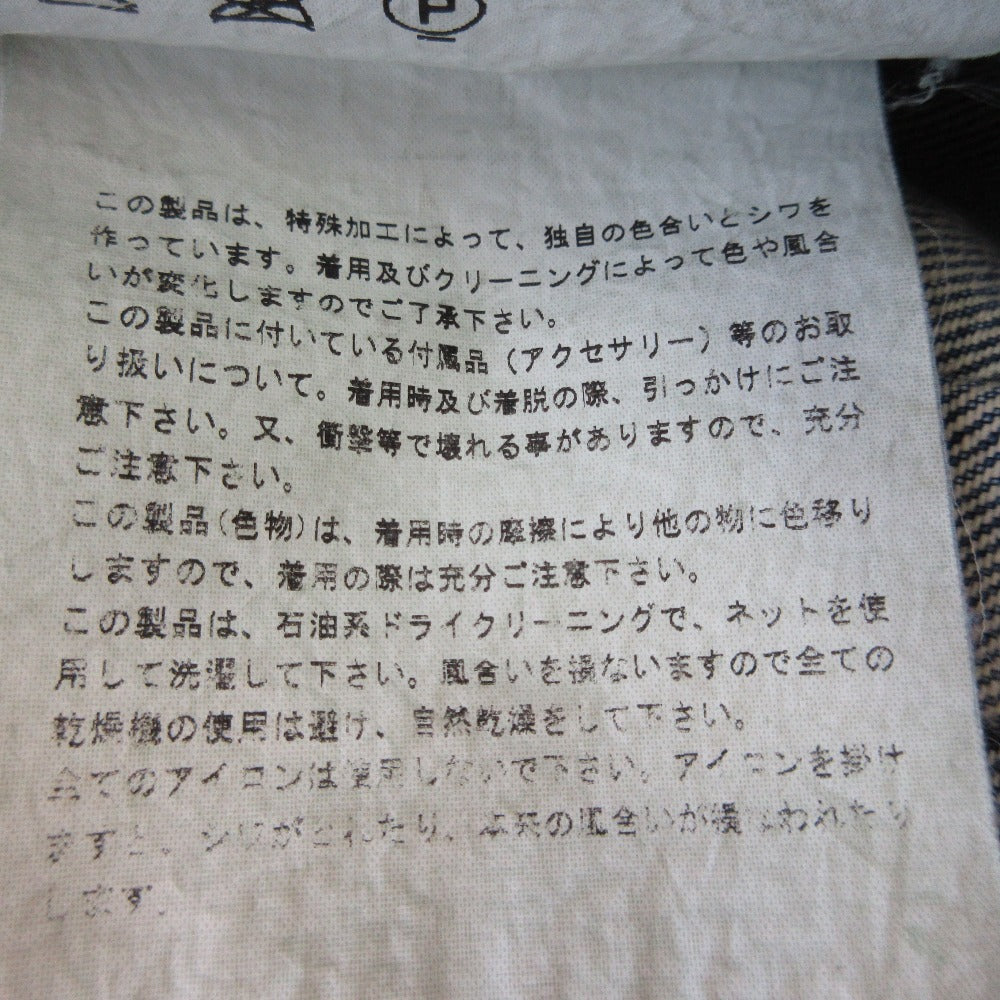 P
この製品は、特殊加工によって、独自の色合いとシワを
作っています。着用及びクリーニングによって色や風合
いが変化しますのでご了承下さい。
この製品に付いている付属品（アクセサリー）等のお取
り扱いについて。着用時及び着脱の際、引っかけにご注
意下さい。又、衝撃等で壊れる事がありますので、充分
ご注意下さい。
この製品（色物）は、着用時の摩擦により他の物に色移り
しますので、着用の際は充分ご注意下さい。
この製品は、石油系ドライクリーニングで、ネットを使
用して洗濯して下さい。風合いを損ないますので全ての
乾燥機の使用は避け、自然乾燥をして下さい。
全てのアイロンは使用しないで下さい。アイロンを掛け
ますと、シワがとれたり、本来の風合いが損なわれたり
します。